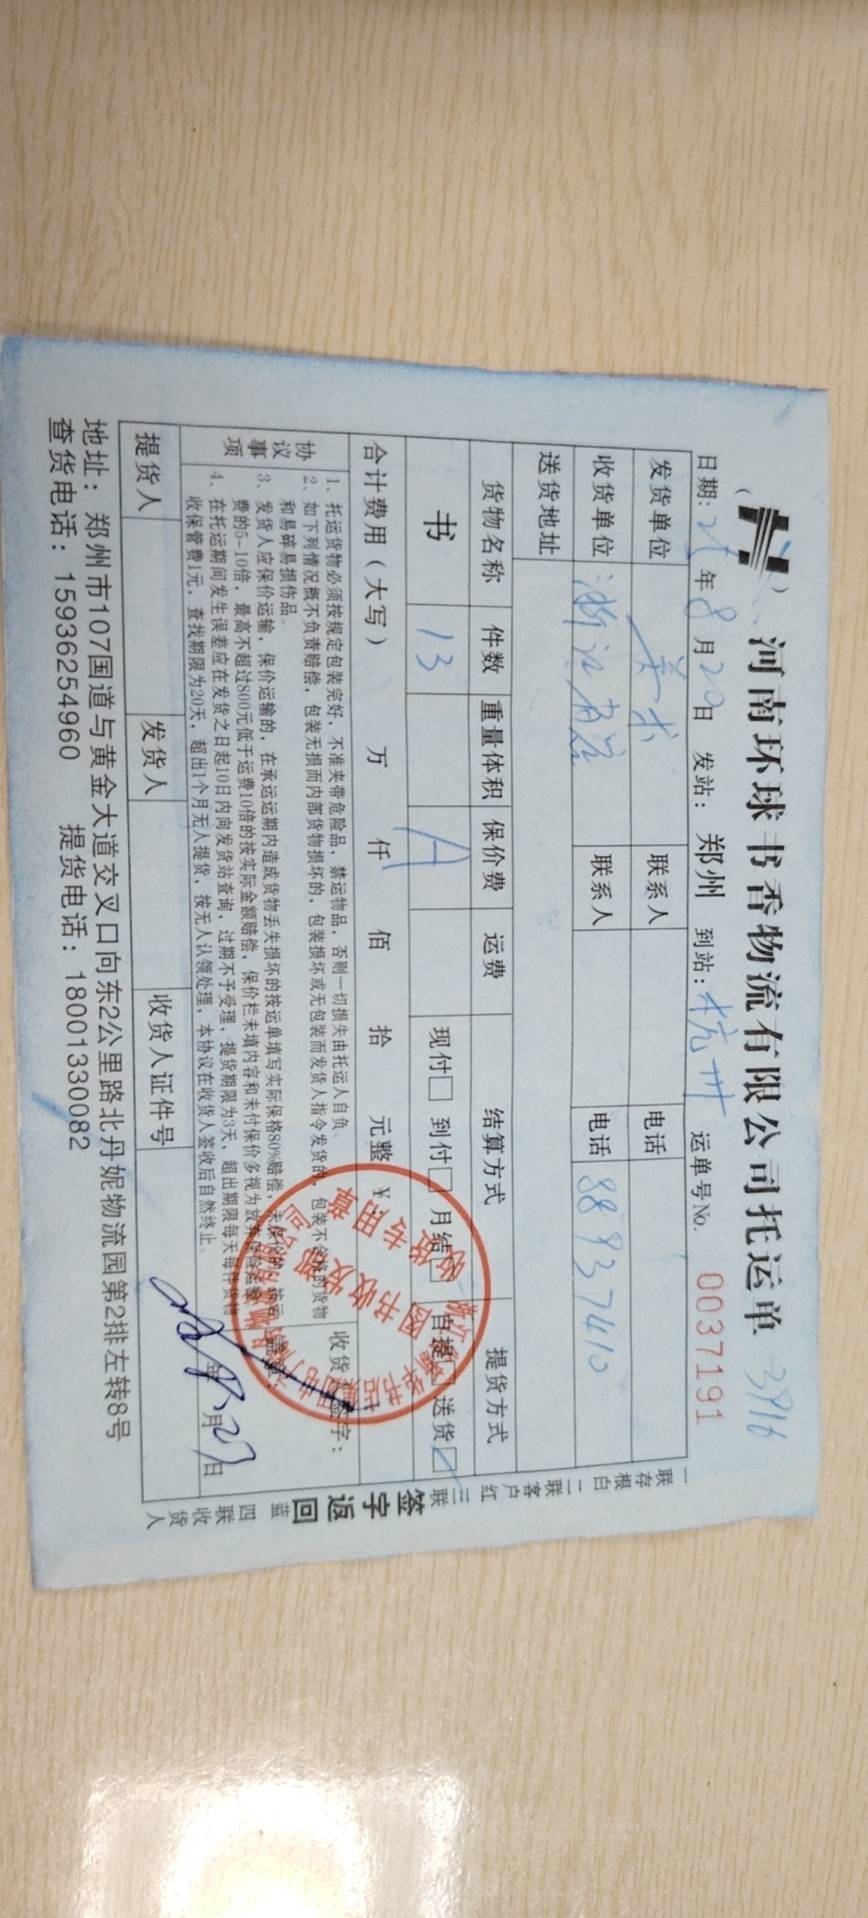 河南环球书香物流有限公司托运单 3916
日期: 25年8月20日 发站: 郑州 到站: 杭州 运单号No. 0037191
发货单位 美术 联系人 电话
收货单位 浙江 联系人 电话 88937410
送货地址
货物名称 件数 重量体积 保价费 运费 结算方式 提货方式
书 13 A 现付□ 到付□ 月结□ 自提□ 送货□
合计费用(大写) 万 仟 佰 拾 元整 ¥:
协议事项
1、托运货物必须按规定包装完好，不准夹带危险品，禁运物品，否则一切损失由托运人自负。
2、如下列情况概不负责赔偿，包装无损而内部货物损坏的，包装损坏或无包装而发货人指令发货的，包装不合格的货物
和易碎易损伤品。
3、发货人应保价运输，保价运输的，在承运期内造成货物丢失损坏的按运单填写实际保格80%赔偿，未保价的，按运
费的5-10倍，最高不超过800元低于运费10倍的按实际金额赔偿，保价栏未填内容和未付保价多视为放弃保险运输
4、在托运期间发生误差应在发货之日起10日内向发货站查询，过期不予受理，提货期限为3天，超出期限每天每件货物
收保管费1元，查找期限为20天，超出1个月无人提货，按无人认领处理，本协议在收货人签收后自然终止。
收货 签字:
年 月 日
提货人 发货人 收货人证件号
地址: 郑州市107国道与黄金大道交叉口向东2公里路北丹妮物流园第2排左转8号
查货电话: 15936254960 提货电话: 18001330082
一联存根白 二联客户红 三联签字返回蓝 四联收货人
图书收发部
收货专用章